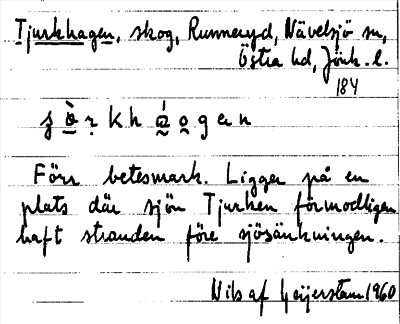 Tjurkhagen, skog, Runneryd, Nävelsjö sn,
Östra hd, Jönk. l.
184
Förr betesmark. Ligger på en
plats där sjön Tjurken förmodligen
haft stranden före sjösänkningen.
Nils af Geijerstam 1960